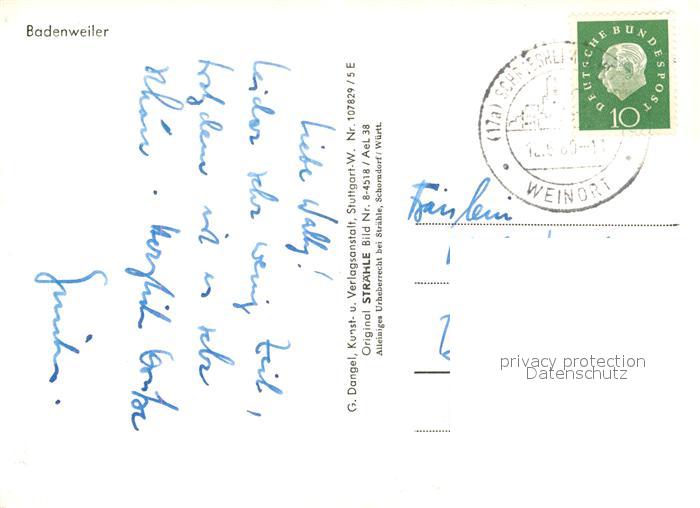 Badenweiler
Liebe Wally!
Leider sehr wenig Zeit,
trotzdem ist es sehr
schön. Herzliche Grüße
Günther.
G. Dangel, Kunst- u. Verlagsanstalt, Stuttgart-W. Nr. 107829 / 5 E
Original STRÄHLE Bild Nr. 8-4518 / AeL 38
Alleiniges Urheberrecht bei Strähle, Schorndorf / Württ.
DEUTSCHE BUNDESPOST
10
(17a)
WEINORT
Fräulein
privacy protection
Datenschutz